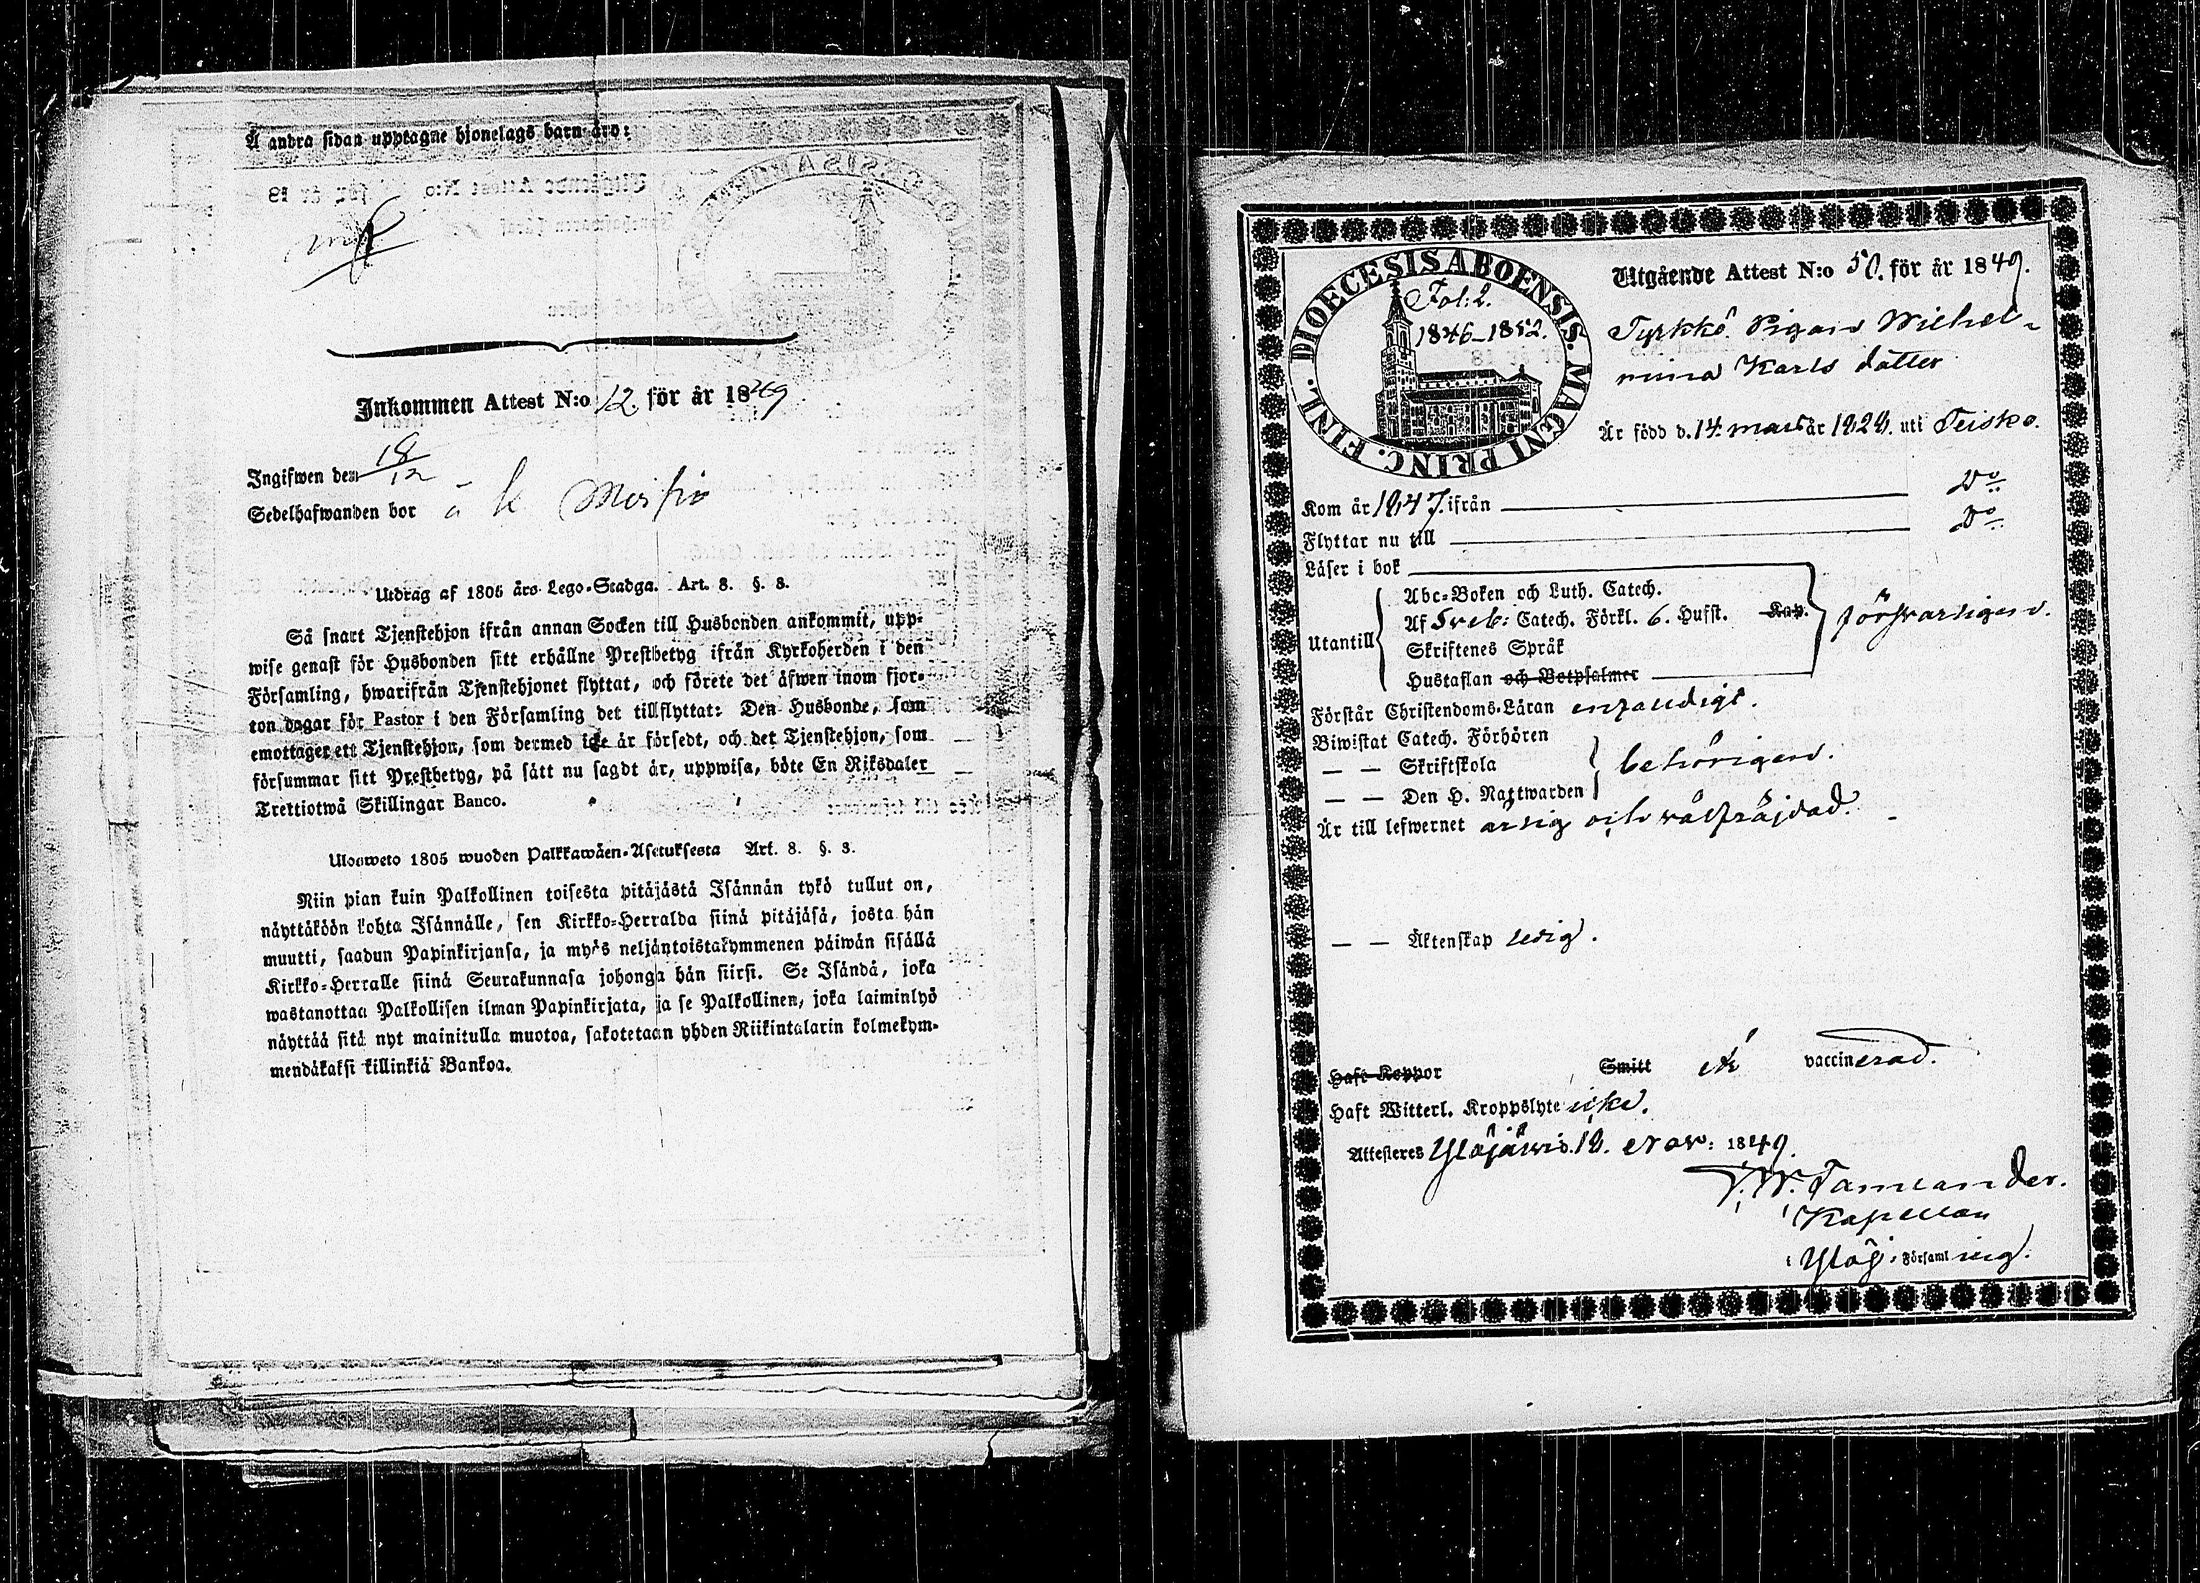 Å andra sidan upptagne hjonelags barn äro:
Inkommen Attest N:o 12 för år 1849
Ingifwen den 18/12
Sedelhafwanden bor å
Utdrag af 1805 års Lego-Stadga. Art. 8. §. 8.
Så snart Tjenstehjon ifrån annan Socken till Husbonden ankommit, upp-
wise genast för Husbonden sitt erhållne Prestbetyg ifrån Kyrkoherden i den
Församling, hwarifrån Tjenstehjonet flyttat, och förete det äfwen inom fjor-
ton dagar för Pastor i den Församling det tillflyttat: Den Husbonde, som
emottager ett Tjenstehjon, som dermed icke är försedt, och det Tjenstehjon, som
försummar sitt Prestbetyg, på sätt nu sagdt är, uppwisa, böte En Riksdaler
Trettiotwå Skillingar Banco.
Ulosweto 1805 wuoden Palkkawäen-Asetuksesta Art. 8. §. 8.
Niin pian kuin Palkollinen toisesta pitäjästä Isännän tykö tullut on,
näyttäköön kohta Isännälle, sen Kirkko-Herralda siinä pitäjäsä, josta hän
muutti, saadun Papinkirjansa, ja myös neljäntoistakymmenen päiwän sisällä
Kirkko-Herralle siinä Seurakunnasa johonga hän siirsi. Se Isändä, joka
wastanottaa Palkollisen ilman Papinkirjata, ja se Palkollinen, joka laiminlyö
näyttää sitä nyt mainitulla muotoa, sakotetaan yhden Riikintalarin kolmekym-
mendäkaksi killinkiä Bankoa.
DIOECESIS ABOENSIS. MAGNI PRINC. FINL.
Fol: 2.
1846–1852.
Utgående Attest N:o 50. för år 1849.
Tyrkkö Pigan Wilhel-
mina Karls dotter
Är född d. 14. mars år 1828. uti Teisko.
Kom år 1847. ifrån Do
Flyttar nu till Do
Läser i bok
Utantill
Abc-Boken och Luth. Catech.
Af Sveb: Catech. Förkl. 6. Hufst. Kap.
Skriftenes Språk
Hustaflan och Botpsalmer
försvarligen.
Förstår Christendoms-Läran enfaldigt.
Biwistat Catech. Förhören
— — Skriftskola
— — Den H. Nattwarden
behörigen.
Är till lefwernet ärlig och wälfräjdad.
— — Äktenskap ledig.
Haft Koppor Smitt är vaccinerad.
Haft Witterl. Kroppslyte icke.
Attesteres Ylöjärwi d. 18. Nov: 1849.
Kapellan
i Ylöj. Församling.